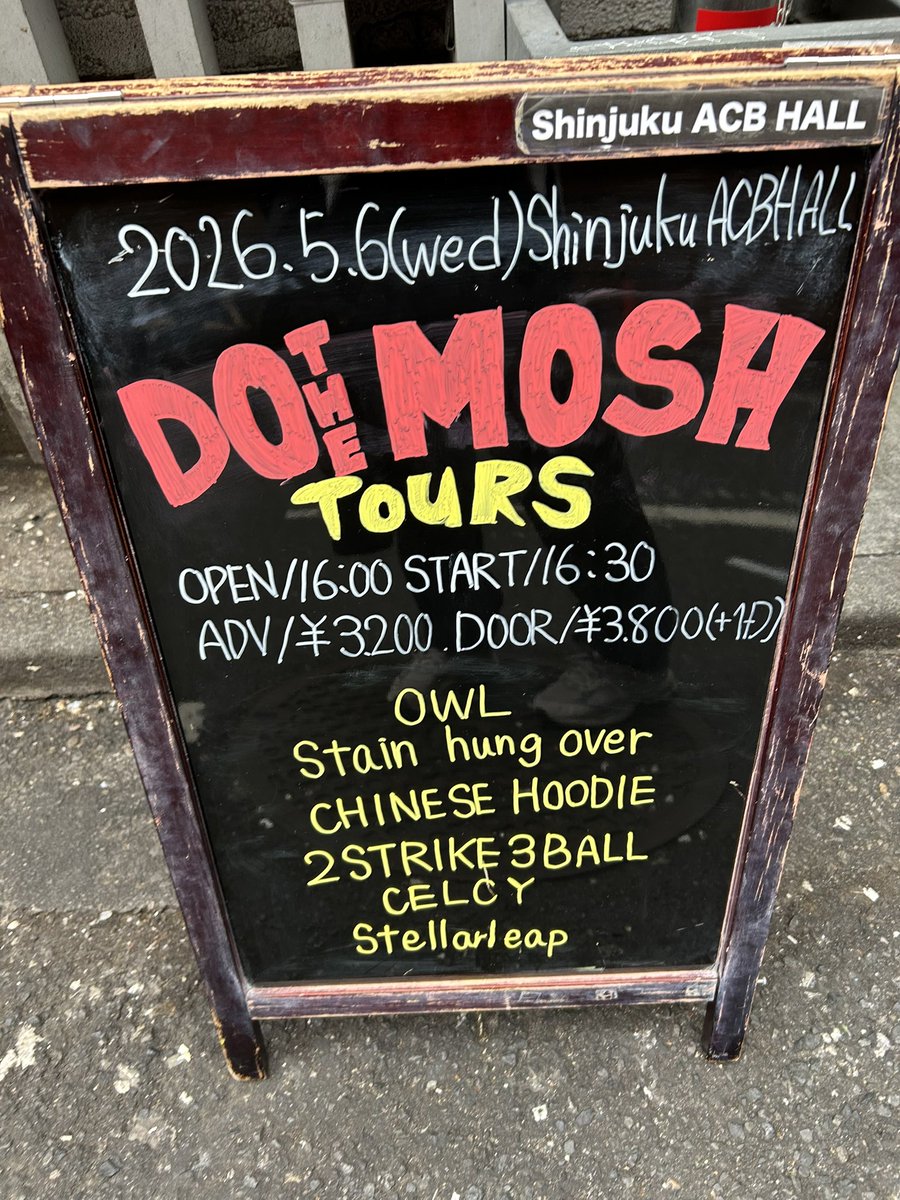 Shinjuku ACB HALL
2026.5.6(wed)Shinjuku ACBHALL
DO THE MOSH
TOURS
OPEN/16:00 START/16:30
ADV/¥3200.DOOR/¥3.800(+1D)
OWL
Stain hung over
CHINESE HOODIE
2STRIKE3BALL
CELCY
Stellarleap